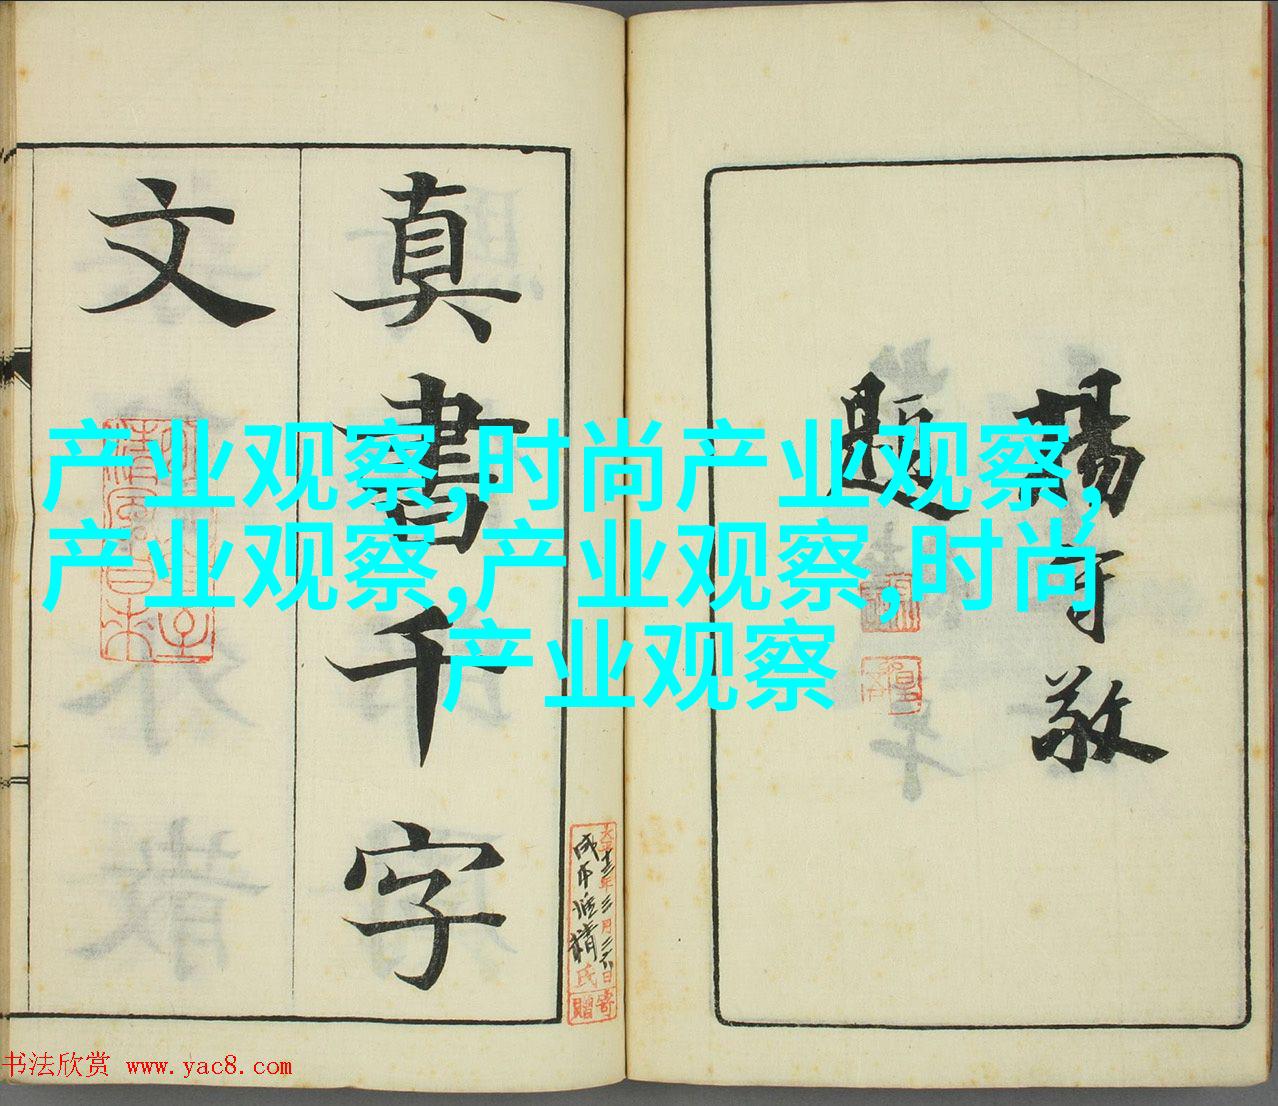 楊守敬
題
真書千字
文
产业观察,时尚产业观察,
产业观察,产业观察,时尚
产业观察
书法欣赏 www.yac8.com